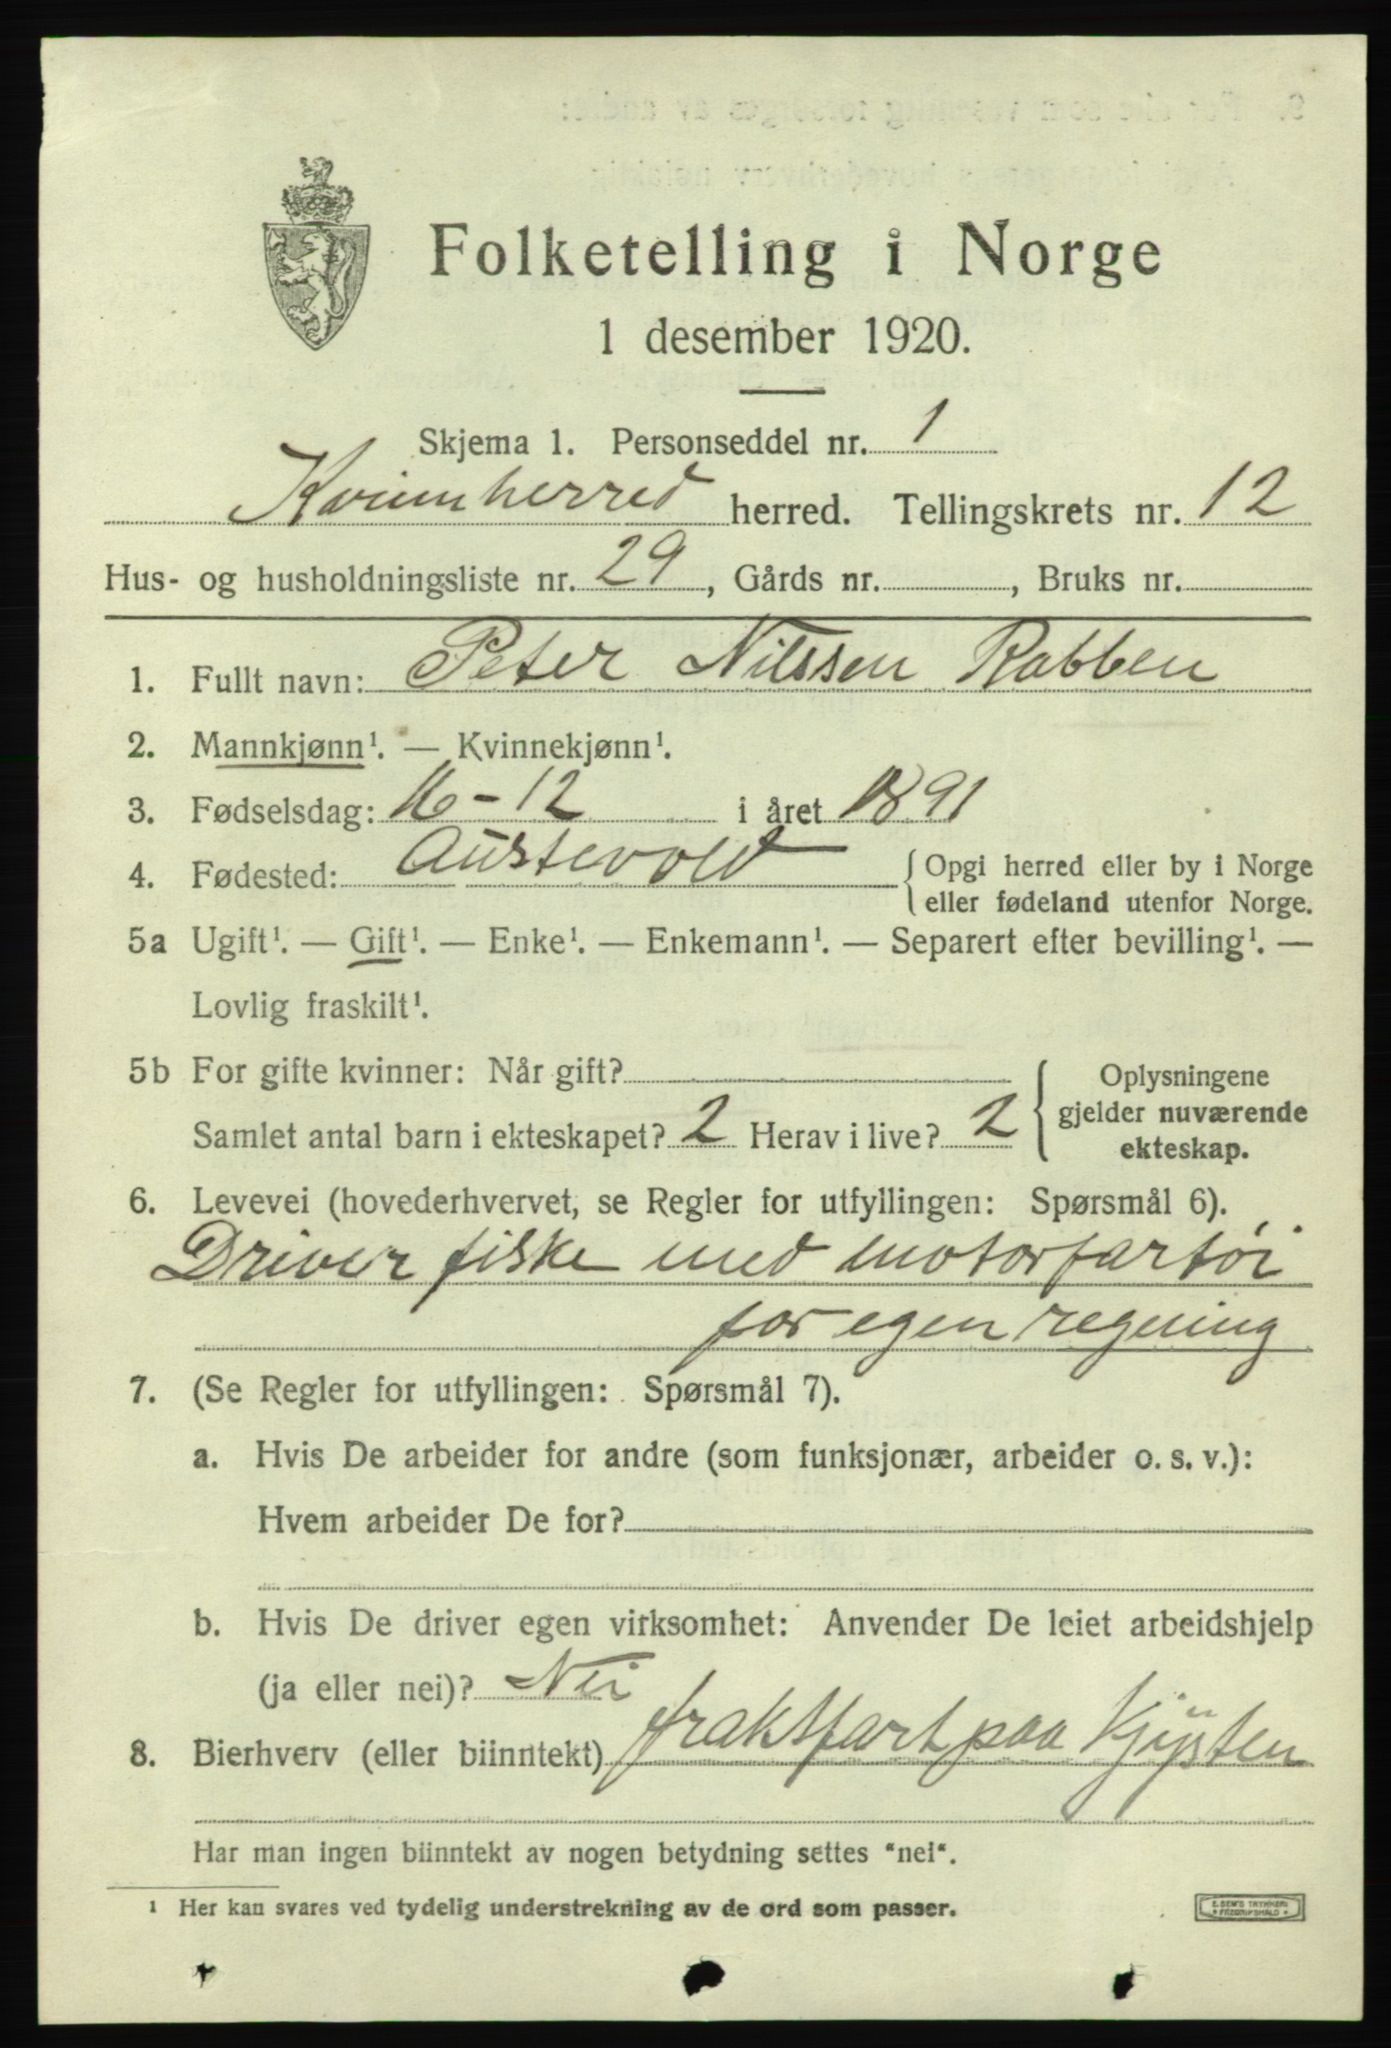 Folketelling i Norge
1 desember 1920.
Skjema 1. Personseddel nr. 1
Kvinnherred herred. Tellingskrets nr. 12
Hus- og husholdningsliste nr. 29, Gårds nr. , Bruks nr.
1. Fullt navn: Peter Nilssen Rabben
2. Mannkjønn¹. — Kvinnekjønn¹.
3. Fødselsdag: 16-12 i året 1891
4. Fødested: Austevold { Opgi herred eller by i Norge
eller fødeland utenfor Norge.
5a Ugift¹. — Gift¹. — Enke¹. — Enkemann¹. — Separert efter bevilling¹. —
Lovlig fraskilt¹.
5b For gifte kvinner: Når gift?
Samlet antal barn i ekteskapet? 2 Herav i live? 2
Oplysningene
gjelder nuværende
ekteskap.
6. Levevei (hovederhvervet, se Regler for utfyllingen: Spørsmål 6).
Driver fiske med motorfartöi
for egen regning
7. (Se Regler for utfyllingen: Spørsmål 7).
a. Hvis De arbeider for andre (som funksjonær, arbeider o. s. v.):
Hvem arbeider De for?
b. Hvis De driver egen virksomhet: Anvender De leiet arbeidshjelp
(ja eller nei)? Nei
8. Bierhverv (eller biinntekt) fraktfart paa Kjysten
Har man ingen biinntekt av nogen betydning settes "nei".
¹ Her kan svares ved tydelig understrekning av de ord som passer.